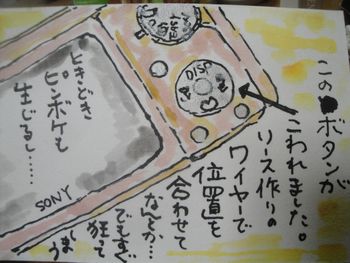 この ボタンが
こわれました。
リース作りの
ワイヤーで
位置を
合わせて
なんとか…
でもすぐ
狂って
しまう
DISP
ときどき
ピンボケも
生じるし……
SONY